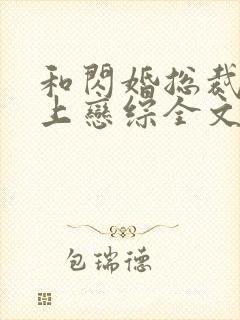 和閃婚総裁
上戀综全文
包瑞德